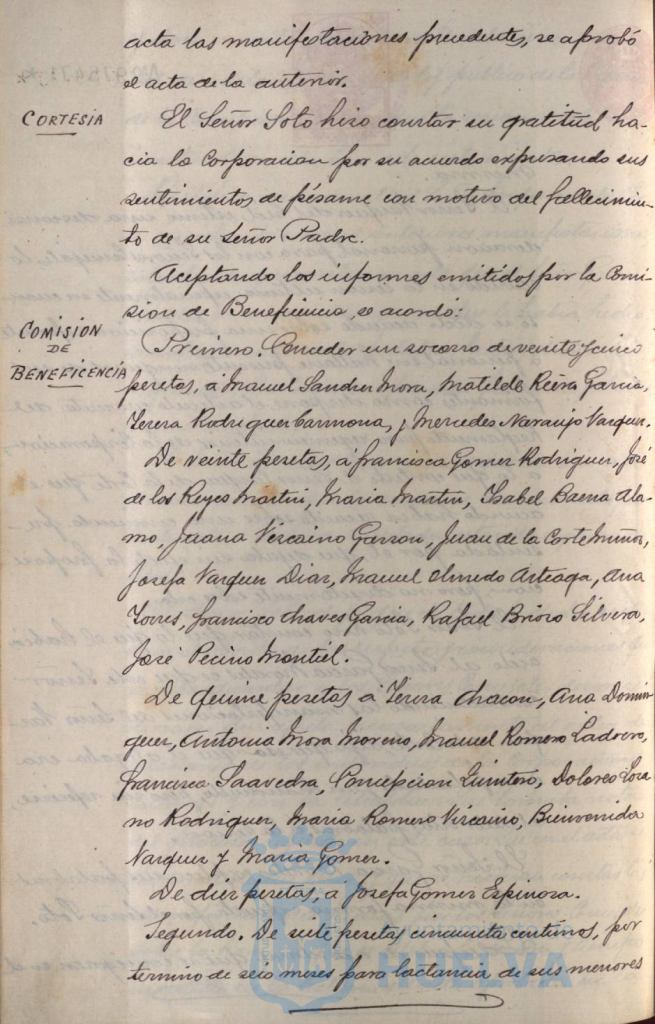 acta las manifestaciones precedentes, se aprobó
el acta de la anterior.
CORTESIA
El Señor Soto hizo constar su gratitud ha-
cia la Corporacion por su acuerdo expresando sus
sentimientos de pésame con motivo del fallecimien-
to de su Señor Padre.
Aceptando los informes emitidos por la Comi-
sion de Beneficencia, se acordó:
COMISION
DE
BENEFICENCIA
Primero. Conceder un socorro de veinte y cinco
pesetas, á Manuel Sanchez Mora, Matilde Riera Garcia,
Teresa Rodriguez Carmona, y Mercedes Naranjo Vazquez.
De veinte pesetas, á Francisca Gomez Rodriguez, José
de los Reyes Martin, Maria Martin, Isabel Baena Ala-
mo, Juana Vizcaino Garzon, Juan de la Corte Muñoz,
Josefa Vazquez Diaz, Manuel Olmedo Arteaga, Ana
Torres, Francisco Chaves Garcia, Rafael Brioso Silvera,
José Pecino Montiel.
De quince pesetas á Teresa Chacon, Ana Domin-
guez, Antonia Mora Moreno, Manuel Romero Ladrero,
Francisca Saavedra, Concepcion Quintero, Dolores Loza
no Rodriguez, Maria Romero Vizcaino, Bienvenida
Vazquez y Maria Gomez.
De diez pesetas, á Josefa Gomez Espinosa.
Segundo. De siete pesetas cincuenta centimos, por
termino de seis meses para lactancia de sus menores
HUELVA